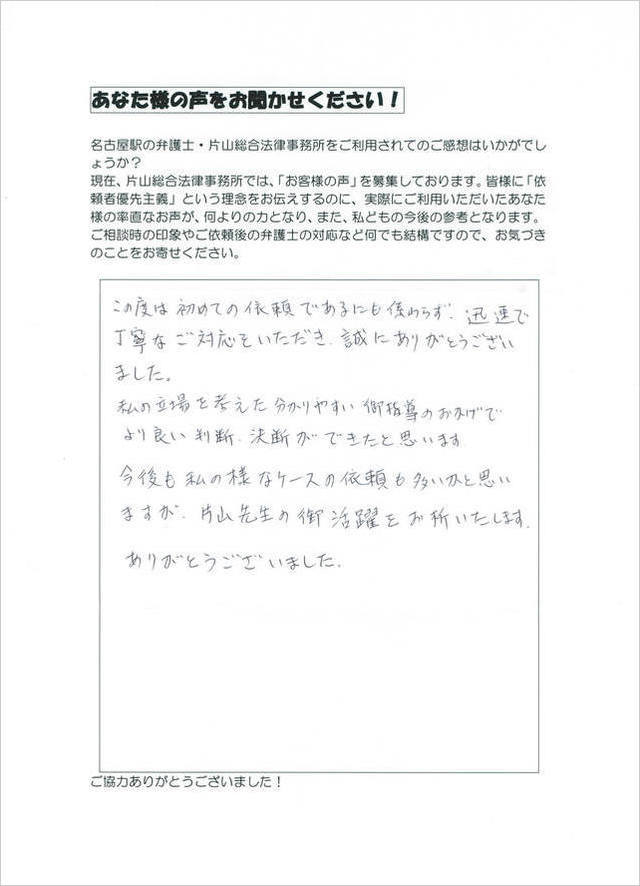 あなた様の声をお聞かせください！
名古屋駅の弁護士・片山総合法律事務所をご利用されてのご感想はいかがでし
ょうか？
現在、片山総合法律事務所では、「お客様の声」を募集しております。皆様に「依
頼者優先主義」という理念をお伝えするのに、実際にご利用いただいたあなた
様の率直なお声が、何よりの力となり、また、私どもの今後の参考となります。
ご相談時の印象やご依頼後の弁護士の対応など何でも結構ですので、お気づき
のことをお寄せください。
この度は初めての依頼であるにも係わらず、迅速で
丁寧なご対応をいただき、誠にありがとうござい
ました。
私の立場を考えた分かりやすい御指導のおかげで
より良い判断、決断ができたと思います
今後も私の様なケースの依頼も多いかと思い
ますが、片山先生の御活躍をお祈いたします。
ありがとうございました。
ご協力ありがとうございました！